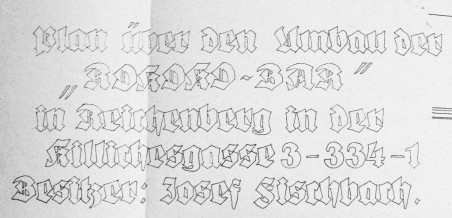 Plan über den Umbau der
„ROKOKO-BAR"
in Reichenberg in der
Killichesgasse 3-334-1
Besitzer: Josef Fischbach.